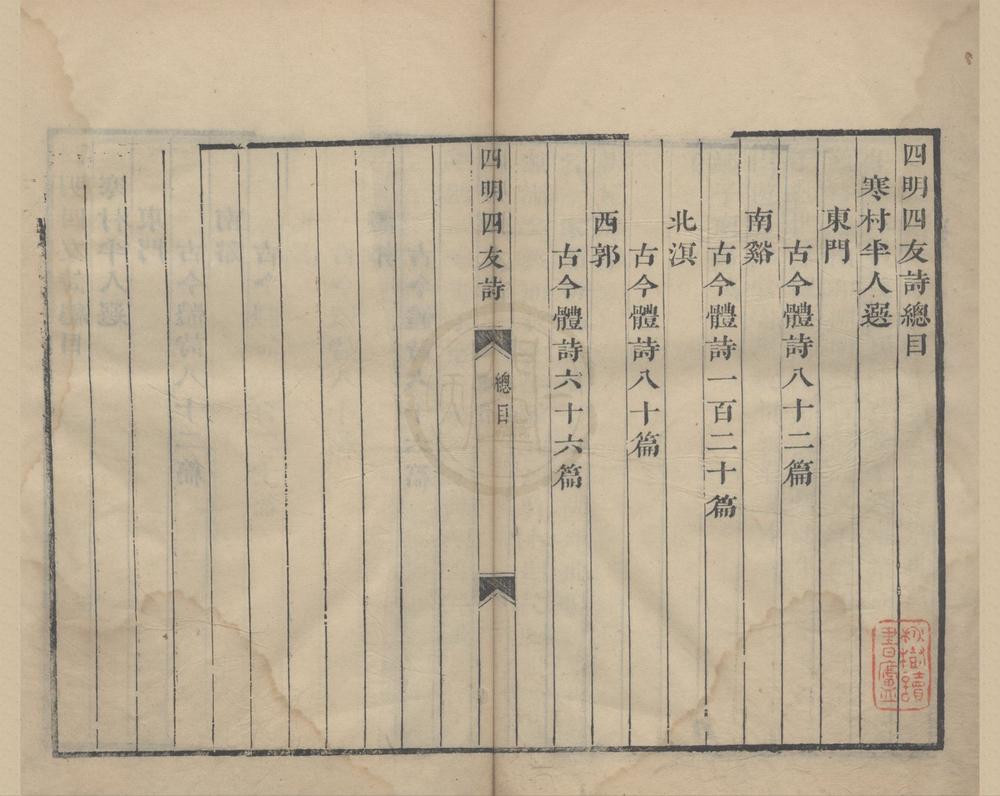 四明四友詩總目
寒村半人選
東門
古今體詩八十二篇
南谿
古今體詩一百二十篇
北溟
古今體詩八十篇
西郭
古今體詩六十六篇
四明四友詩
總目
秋樹讀
書廬